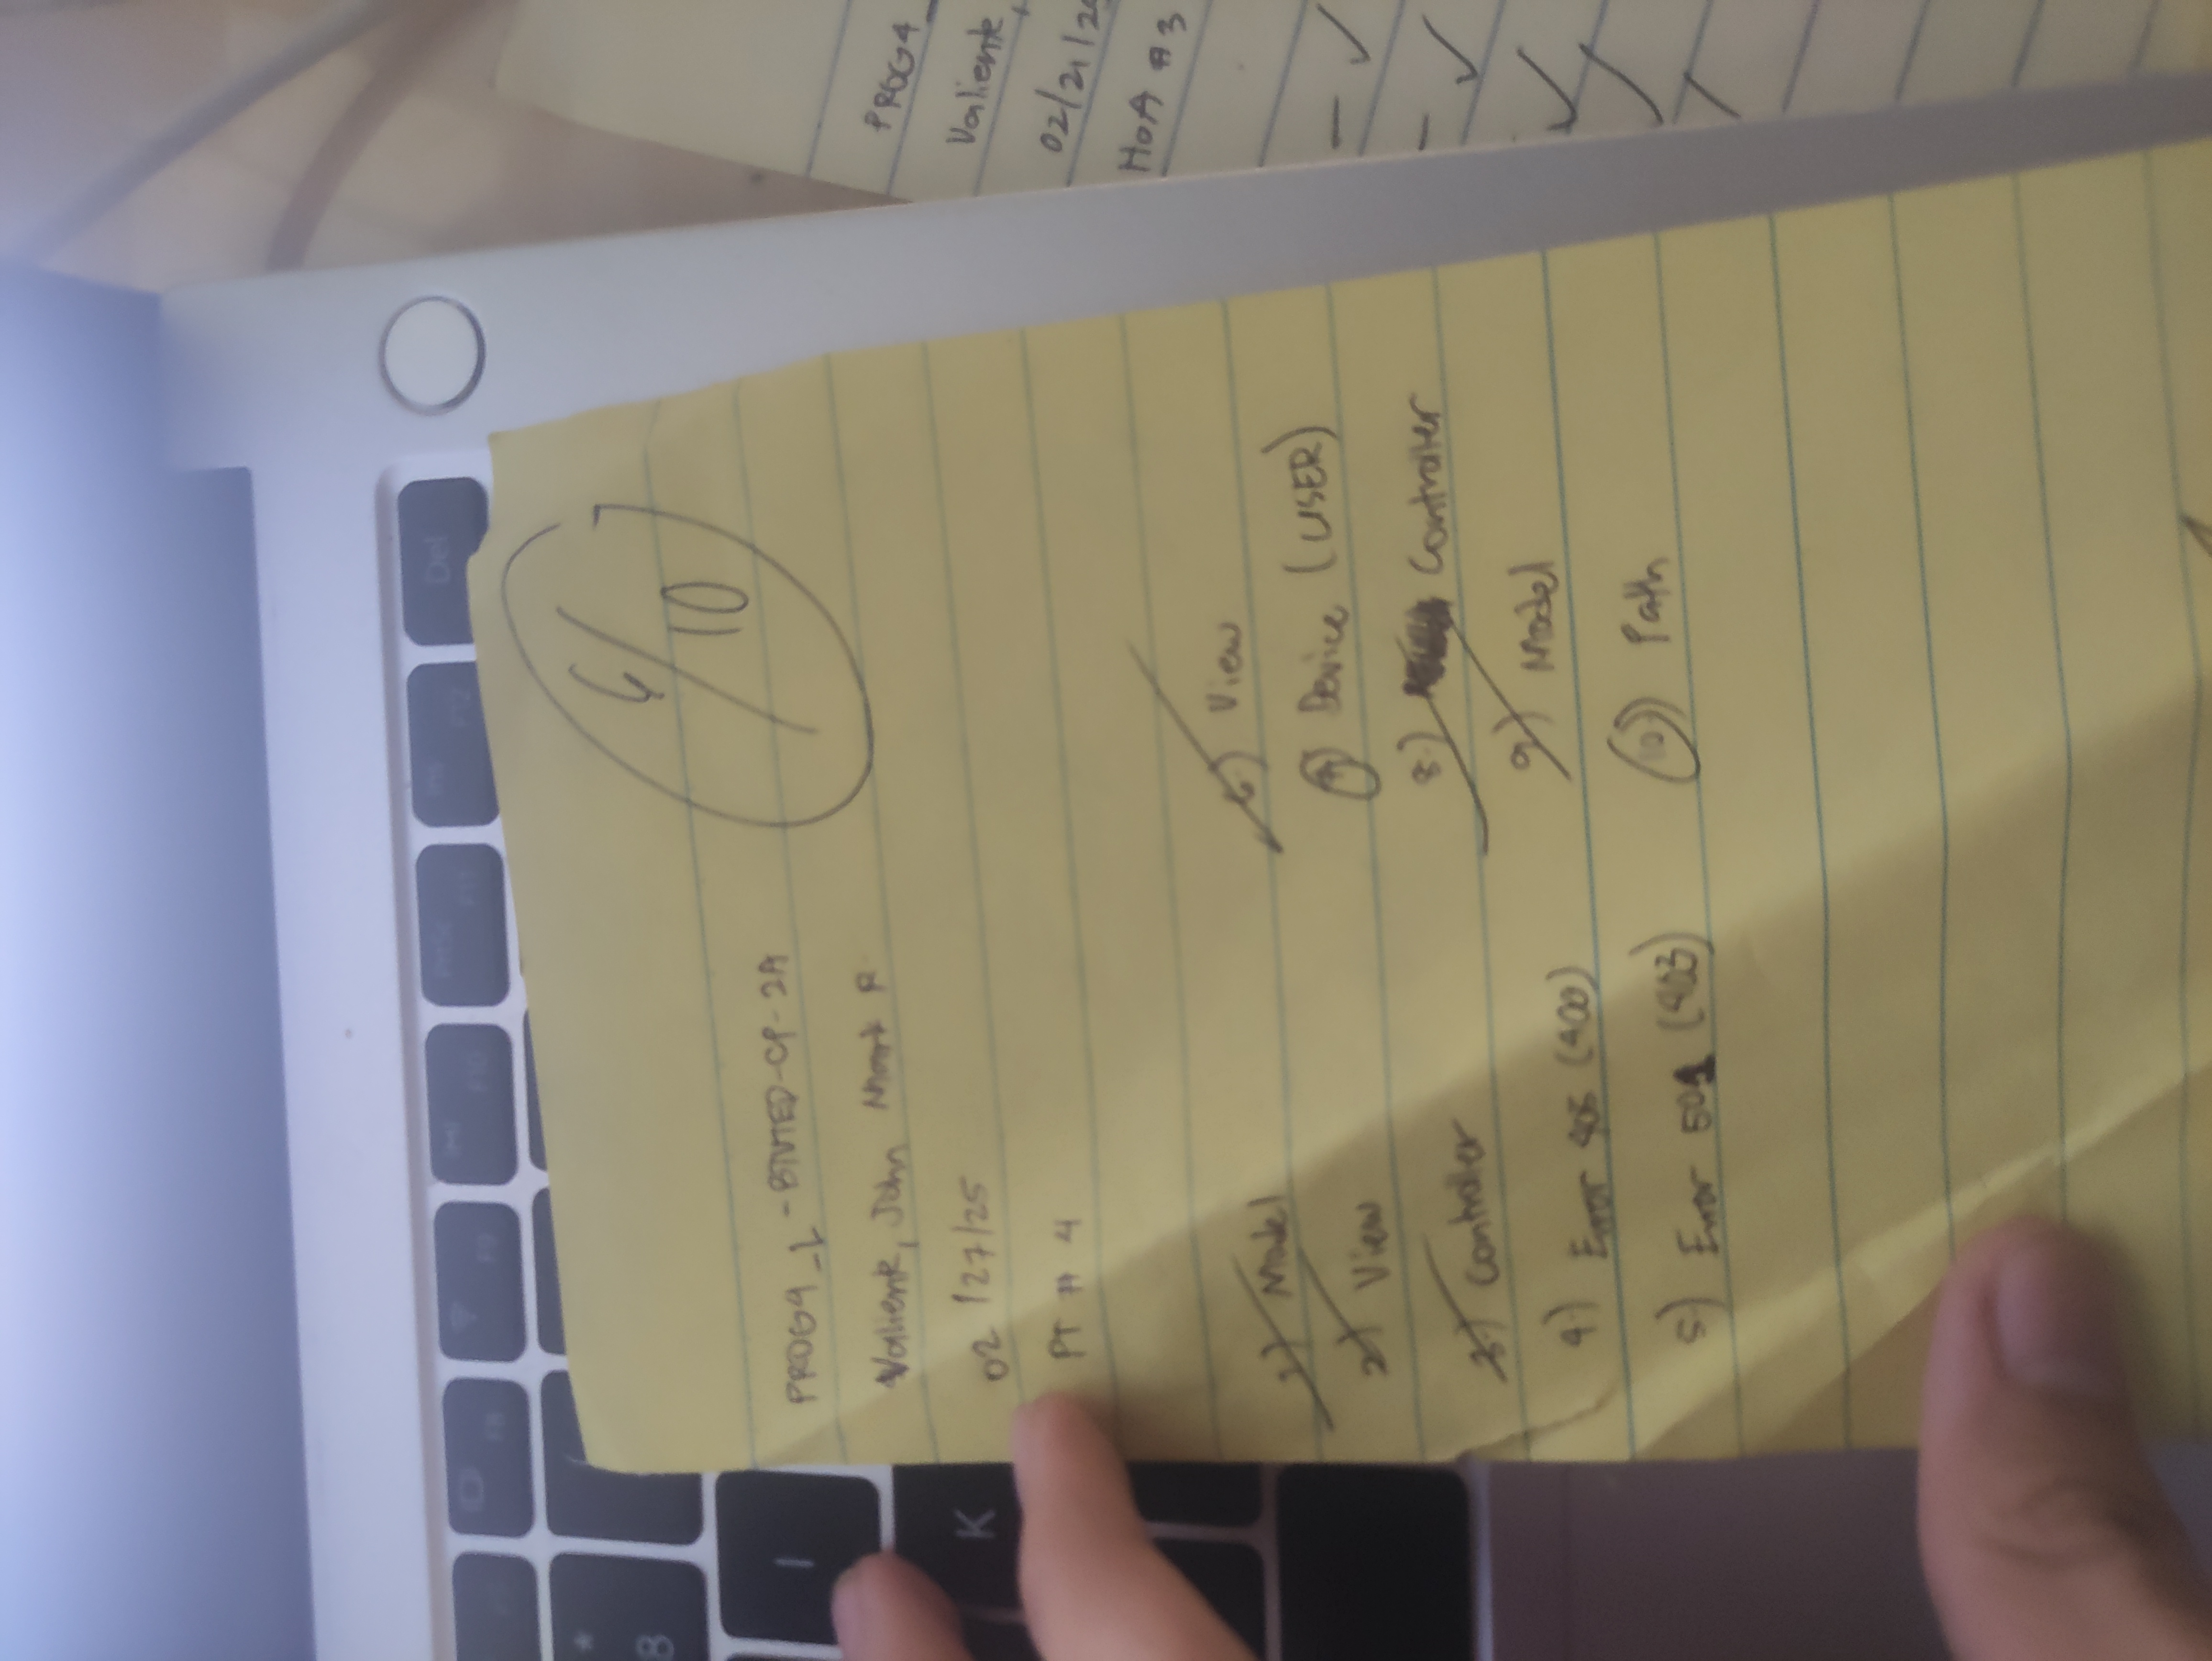 F8
F9
F10
PrtSc
F11
Ins
F12
Del
*
8
I
K
6/10
PROG4_L-BTVTED-CP-2A
Valiente, John Mark R
02/27/25
PT # 4
1) Model
2) View
3) Controller
4) Error 405 (400)
5) Error 501 (403)
6) View
7) Device (USER)
8) Controller
9) Model
10) Path
PROG4_
Valiente,
02/21/25
HOA #3